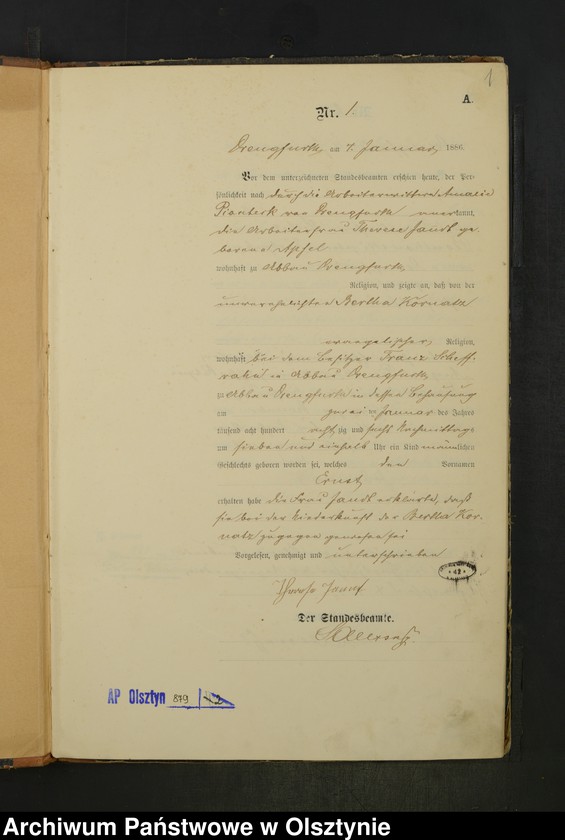 1
A.
Nr. 1.
Drengfurth, am 7. Januar 1886.
Vor dem unterzeichneten Standesbeamten erschien heute, der Per-
sönlichkeit nach durch die Arbeiterwittwe Amalie
von Drengfurth anerkannt,
die Arbeiterfrau Therese Jandt ge-
borene Apfel
wohnhaft zu Abbau Drengfurth,
Religion, und zeigte an, daß von der
unverehelichten Bertha Kornatz
evangelischer Religion,
wohnhaft bei dem Besitzer Franz
in Abbau Drengfurth,
zu Abbau Drengfurth in dessen Behausung
am zwei ten Januar des Jahres
tausend acht hundert acht zig und sechs Nachmittags
um sieben und einhalb Uhr ein Kind männlichen
Geschlechts geboren worden sei, welches den Vornamen
Ernst
erhalten habe die Frau Jandt erklärte, daß
sie bei der Niederkunft der Bertha Kor-
natz zugegen gewesen sei
Vorgelesen, genehmigt und unterschrieben
Der Standesbeamte.
AP Olsztyn 879
Archiwum Państwowe w Olsztynie